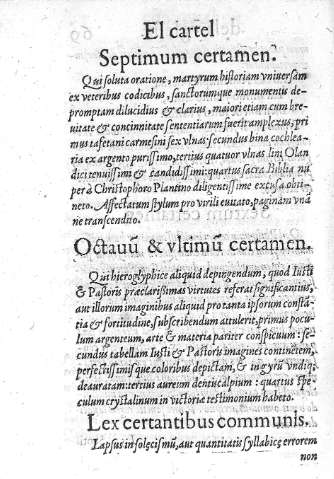 El cartel
Septimum certamen.
Qui soluta oratione, martyrum historiam vniuersam
ex veteribus codicibus, sanctorumque monumentis de-
promptam dilucidius & clarius, maiori etiam cum bre-
uitate & concinnitate sententiarum fuerit amplexus; pri
mus tafetani carmesini sex vlnas: secundus bina cochlea-
ria ex argento purissimo, tertius quatuor vlnas lini Olan
dici tenuissimi & candidissimi: quartus sacra Biblia nu
per à Christophoro Plantino diligentissime excusa obti-
neto. Affectatum stylum pro virili euitato, paginam vna
ne transcendito.
Octauũ & vltimũ certamen.
Qui hieroglyphice aliquid depingendum, quod Iusti
& Pastoris præclarissimas virtutes referat significantius,
aut illorum imaginibus aliquid pro tanta ipsorum constã
tia & fortitudine, subscribendum attulerit, primus pocu-
lum argenteum, arte & materia pariter conspicuum: se-
cundus tabellam Iusti & Pastoris imagines continetem,
perfectissimisque coloribus depictam, & in gyrũ vndiq;
deauratam: tertius aureum dentiscalpium: quartus spe-
culum crystalinum in victoriæ testimonium habeto.
Lex certantibus communis.
Lapsus in solęcismũ, aut quantitatis syllabicę errorem
non